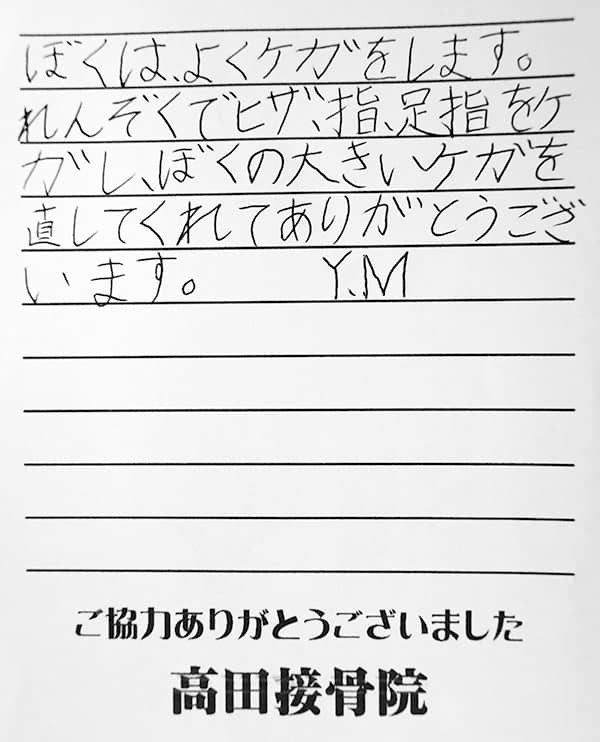 ぼくは、よくケガをします。
れんぞくでヒザ、指、足指をケ
ガし、ぼくの大きいケガを
直してくれてありがとうござ
います。 Y.M
ご協力ありがとうございました
高田接骨院